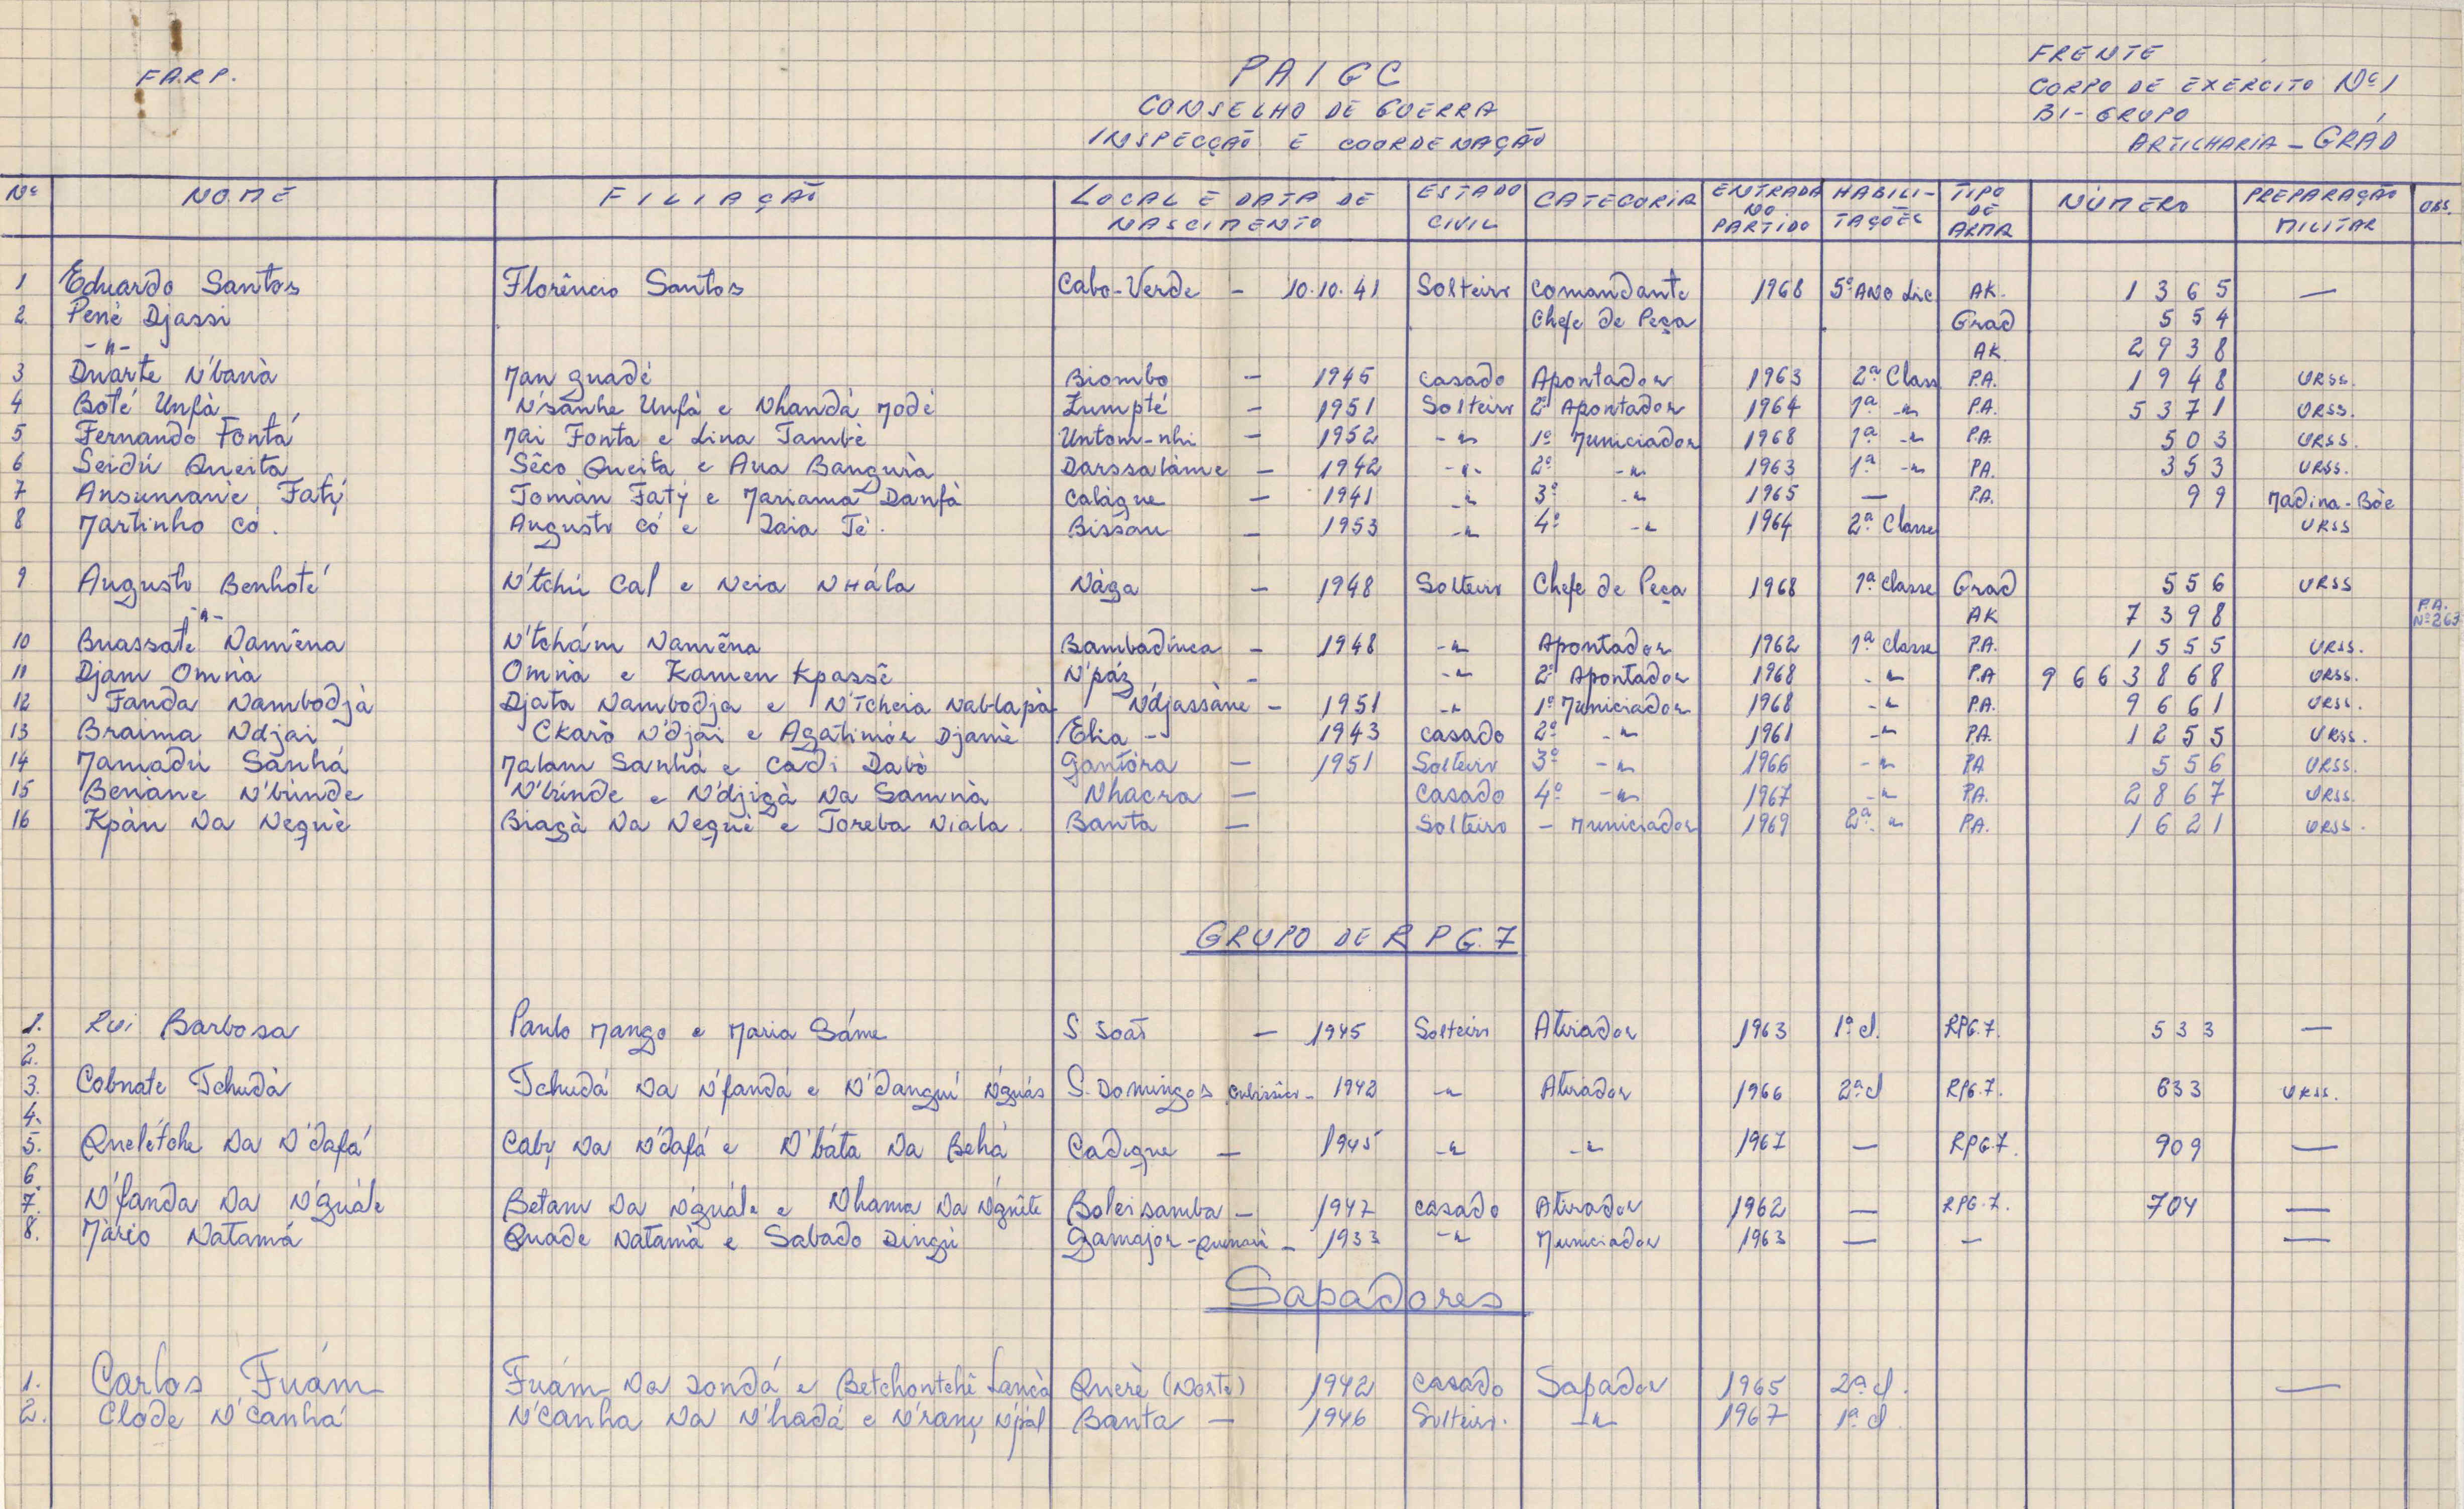 F.A.R.P.
PAIGC
CONSELHO DE GUERRA
INSPECÇÃO E COORDENAÇÃO
FRENTE
CORPO DE EXÉRCITO Nº 1
BI-GRUPO
ARTILHARIA - GRÁD
Nº NOME FILIAÇÃO LOCAL E DATA DE NASCIMENTO ESTADO CIVIL CATEGORIA ENTRADA NO PARTIDO HABILITAÇÕES TIPO DE ARMA NÚMERO PREPARAÇÃO MILITAR OBS.
1 Eduardo Santos Florêncio Santos Cabo-Verde - 10.10.41 Solteiro Comandante 1968 5º ANO Lic AK. 1365 —
2. Pené Djassi Chefe de Peça Grad 554
-"- AK 2938
3 Duarte N'banà Man guadé Biombo - 1945 casado Apontador 1963 2ª Class P.A. 1948 URSS.
4 Boté Unfà N'sanhe Unfà e Nhandà Modé Lumpté - 1951 Solteiro 2º Apontador 1964 1ª -"- P.A. 5371 URSS.
5 Fernando Fontá Mai Fonta e Lina Tambè Untom-nhi - 1952 -"- 1º Municiador 1968 1ª -"- P.A. 503 URSS.
6 Seidú Queita Sêco Queita e Aua Bangurà Darssalàme - 1942 -"- 2º -"- 1963 1ª -"- PA. 353 URSS.
7 Ansumanè Fatý Tomàn Fatý e Mariama Danfà Calàque - 1941 -"- 3º -"- 1965 — P.A. 99 Madina-Bóe
8 Martinho Có. Augusto Có e Zaia Té. Bissau - 1953 -"- 4º -"- 1964 2ª Classe URSS
9 Augusto Benhoté N'tchú Cal e Neia NHála Nàga - 1948 Solteiro Chefe de Peça 1968 1ª classe Grad 556 URSS
-"- AK 7398 P.A. Nº 263
10 Buassate Namêna N'tchám Namêna Bambadinca - 1948 -"- Apontador 1962 1ª classe P.A. 1555 URSS.
11 Djam Omnà Omnà e Kamen Kpassê N'páz - -"- 2º Apontador 1968 -"- P.A 9663868 URSS.
12 Fanda Nambodjà Djata Nambodja e N'tcheia Nablapà N'djassàne - 1951 -"- 1º Municiador 1968 -"- P.A. 9661 URSS.
13 Braima Ndjai Ckarò N'djai e Agatimór Djamè Elia - 1943 casado 2º -"- 1961 -"- P.A. 1255 URSS.
14 Mamadú Sanhá Malam Sanhá e Cadi Dabò Gantòra - 1951 Solteiro 3º -"- 1966 -"- PA 556 URSS.
15 Beniàne N'bùnde N'bùnde e N'djigà Na Samnà Nhacra - casado 4º -"- 1967 -"- P.A. 2867 URSS.
16 Kpàn Na Neguè Biagà Na Neguè e Toreba Niala. Banta - Solteiro - Municiador 1969 2ª -"- P.A. 1621 URSS.
GRUPO DE RPG.7
1. Rui Barbosa Paulo Mango e Maria Sáme S. Joaõ - 1945 Solteiro Atirador 1963 1ª cl. RPG.7 533 —
2.
3. Cobnate Tchudà Tchudá Na N'fandá e N'dangui N'guás S. Domingos - 1942 -"- Atirador 1966 2ª cl RPG.7. 633 URSS.
4.
5. Quelétche Na N'dafá Caby Na N'dafá e N'báta Na Behá Cadique - 1945 -"- -"- 1967 — RPG.7. 909 —
6
7. N'fanda Na N'guále Betam Na N'guále e Nhama Na N'guíte Boleisamba - 1947 casado Atirador 1962 — RPG.7. 704 —
8. Màrio Natamá Quade Natamà e Sabado Dingù Gamajor - 1933 -"- Municiador 1963 — — —
Sapadores
1. Carlos Fuám Fuám Na Sondá e Betchontchê Lancà Querè (Norte) 1942 casado Sapador 1965 2ª cl. —
2. Clode N'canhá N'canha Na N'hadá e N'ranç N'pál Banta - 1946 Solteiro. -"- 1967 1ª cl